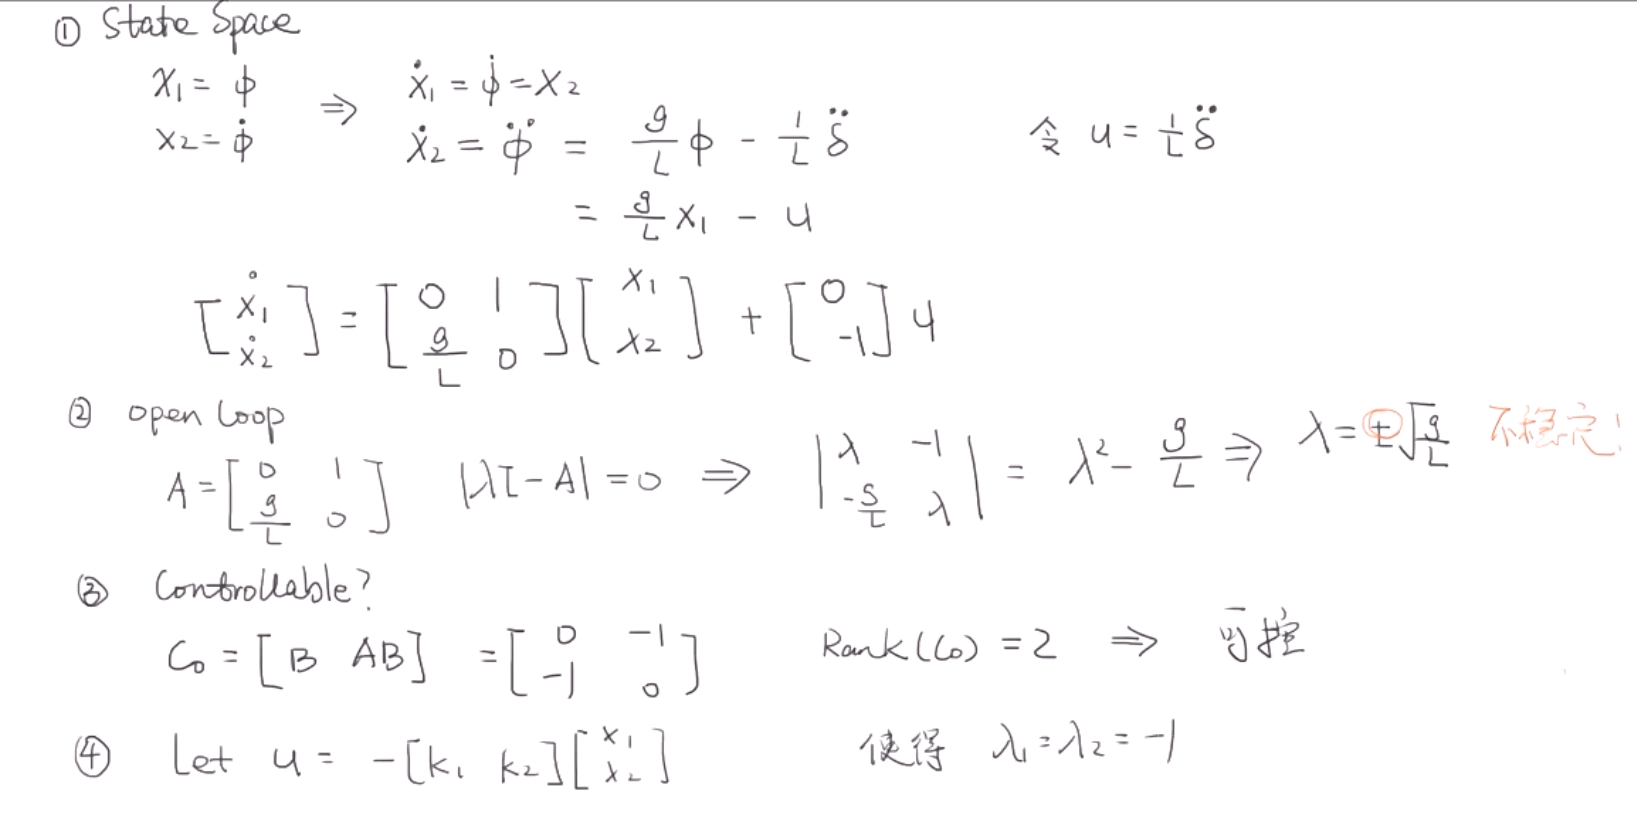 ① State Space
x₁ = ϕ ⇒ ẋ₁ = ϕ̇ = x₂
x₂ = ϕ̇ ẋ₂ = ϕ̈ = g/L ϕ - 1/L δ̈ 令 u = 1/L δ̈
= g/L x₁ - u
[ẋ₁ ẋ₂] = [0 1 g/L 0][x₁ x₂] + [0 -1] u
② open loop
A = [0 1 g/L 0] |λI - A| = 0 ⇒ |λ -1 -g/L λ| = λ² - g/L ⇒ λ = ±√g/L 不稳定!
③ Controllable?
Co = [B AB] = [0 -1 -1 0] Rank(Co) = 2 ⇒ 可控
④ Let u = -[k₁ k₂][x₁ x₂] 使得 λ₁ = λ₂ = -1